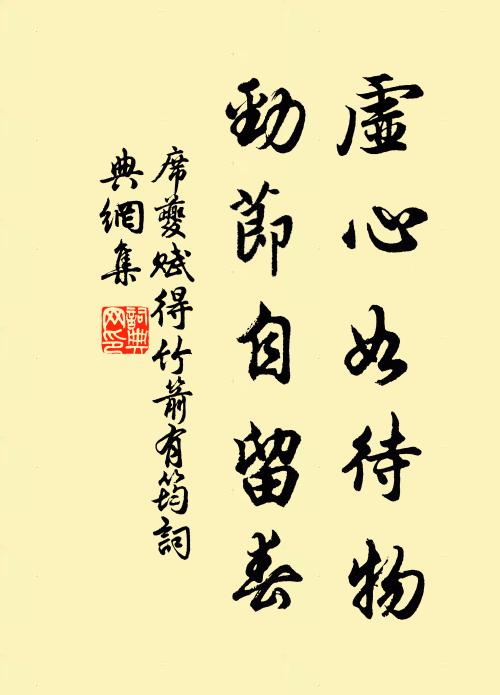 虛心如待物
勁節自留春
席夔賦得竹箭有筠詞
典網集
詞典网印